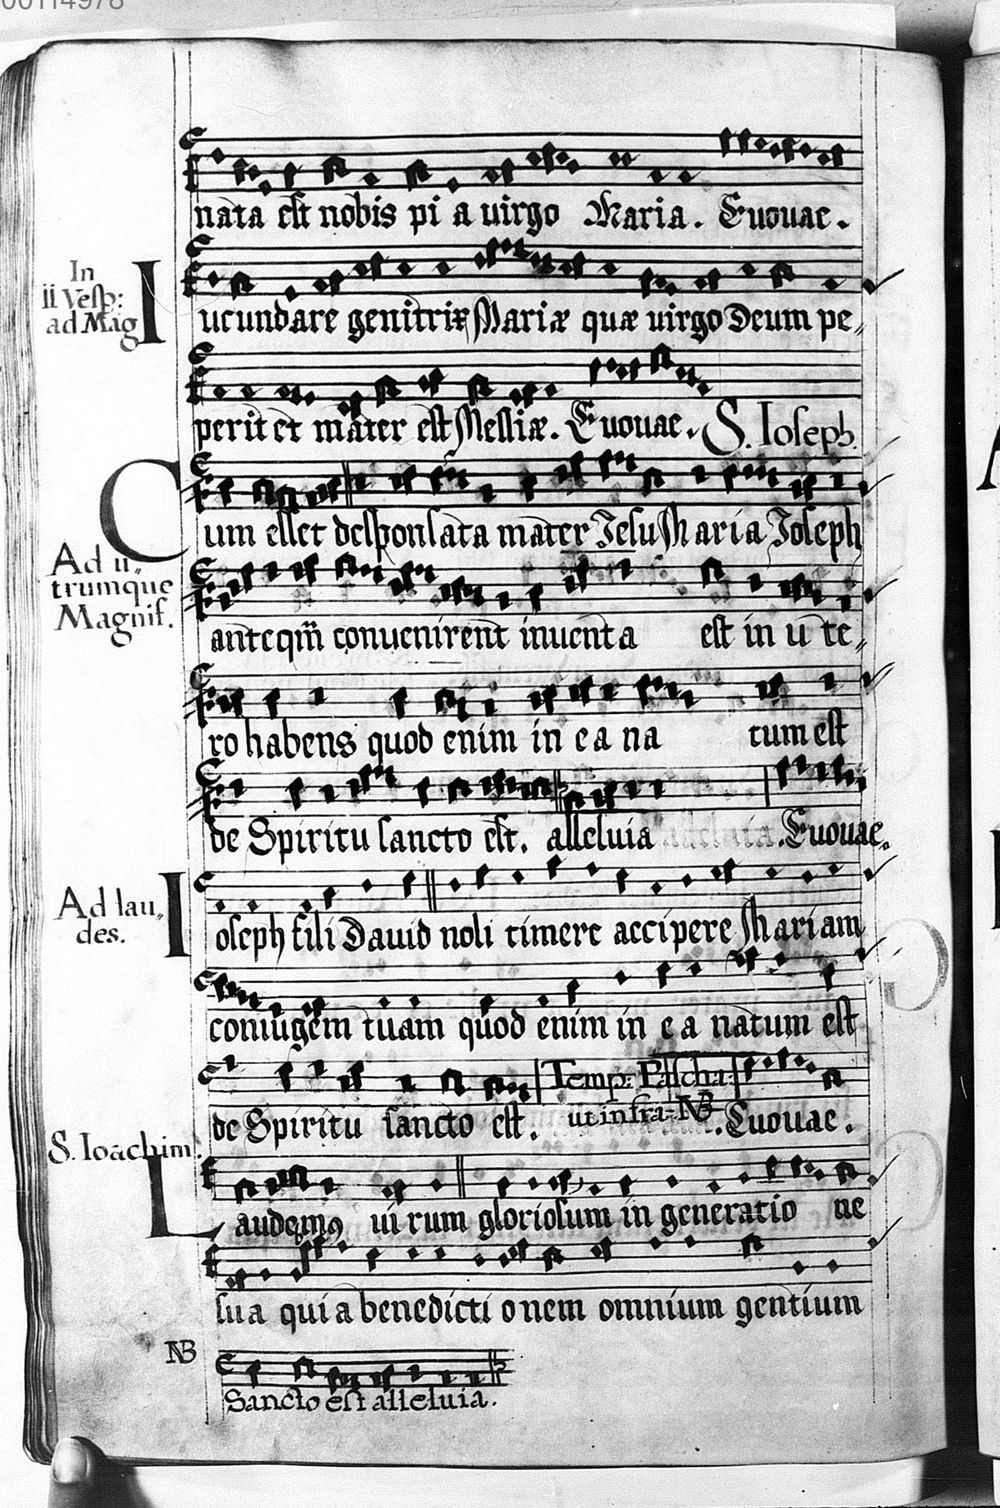 00114978
nata est nobis pi a uirgo Maria. Euouae.
In
ii Vesp:
ad Mag
Iucundare genitrix Mariæ quæ uirgo Deum pe,,
perit et mater est Messiæ. Euouae. S. Ioseph
Cum esset desponsata mater Jesu Maria Joseph
Ad u,,
trumque
Magnif.
anteqm̄ conuenirent inuenta est in u te,,
ro habens quod enim in e a na tum est
de Spiritu sancto est. alleluia .Euouae.
Ad lau,,
des.
Ioseph fili Dauid noli timere accipere Mariam
coniugem tuam quod enim in e a natum est
de Spiritu sancto est. Temp: Pascha:
ut infra: NB .Euouae.
S. Ioachim.
Laudemus ui rum gloriosum in generatio ne
sua qui a benedicti onem omnium gentium
NB
Sancto est alleluia.